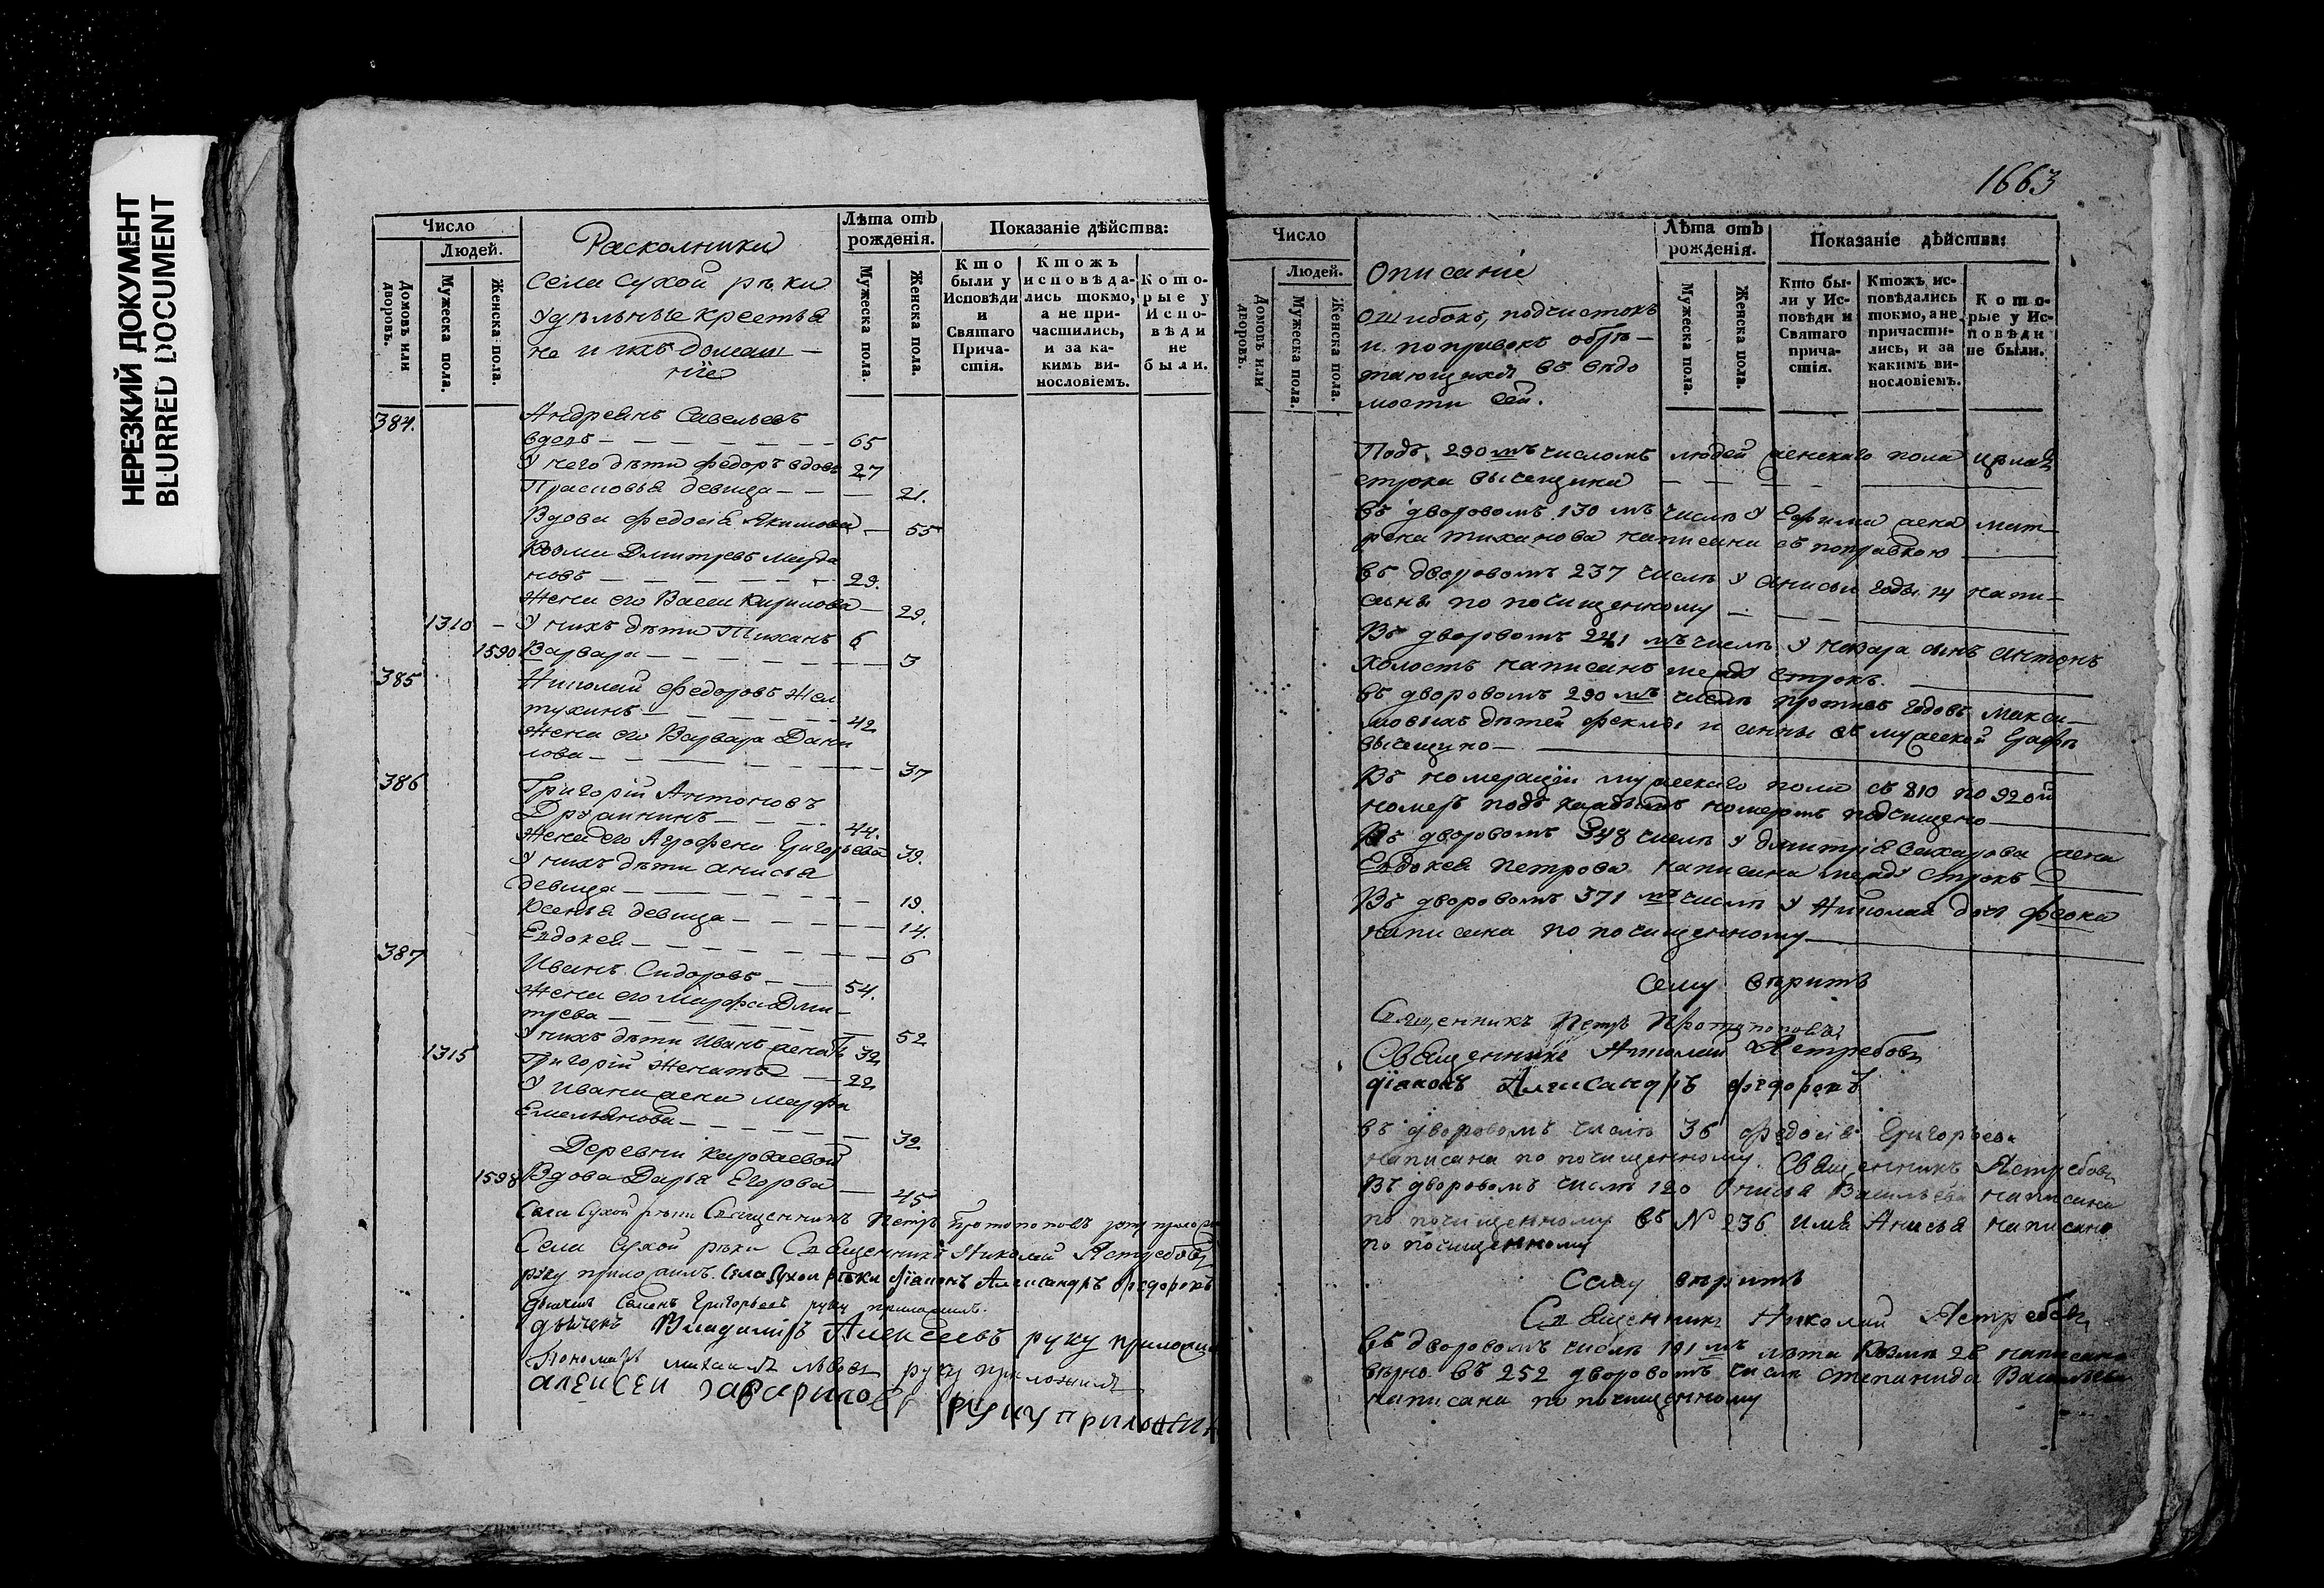 НЕРЕЗКИЙ ДОКУМЕНТ
BLURRED DOCUMENT
Число
Людей.
Домовъ или дворовъ.
Мужеска пола.
Женска пола.
Раскольники
села Сухой рѣки
удѣльные крестья
не и ихъ домаш-
ніе
Лѣта отъ рожденія.
Мужеска пола.
Женска пола.
Показаніе дѣйства:
Кто были у Исповѣди и Святаго Прича-стія.
Ктожъ исповѣда-лись токмо, а не при-частились, и за ка-кимъ ви-нословіемъ.
Кото-рые у Испо-вѣди не были.
384. Андреянъ Савельевъ
вдовъ — 65
У него дѣти Федоръ вдовъ 27
Прасковья девица — 21.
Вдова Федосья Якимова — 55
Козма Дмитревъ
новъ — 29.
Жена его Васса Кирилова — 29.
1310 — У нихъ дѣти Тихонъ 6
1590 Варвара — 3
385 Николай Федоровъ Жел
тухинъ — 42
Жена его Варвара Дани
лова — 37
386 Григорій Антоновъ
Дружининъ — 44.
Жена его Агрофена Григорьева 39.
У нихъ дѣти Анисья
девица — 19.
Ксенья девица — 14.
Евдокея — 6
387 Иванъ Сидоровъ — 54.
Жена его Марфа Дми-
трева — 52
У нихъ дѣти Иванъ женатъ 32
1315 Григорій женатъ — 22
У Ивана жена Марфа
Емельянова — 32
Деревни Короваевой
1598 Вдова Дарья Егорова — 45
Села Сухой рѣки Священникъ Петръ Протопоповъ руку приложи
Села Сухой рѣки Священникъ Николай Ястребовъ
руку приложилъ. Села Сухой рѣки діаконъ Александръ Федоровъ
дьячекъ Семенъ Григорьевъ руку приложилъ.
дьячекъ Владимиръ Алексеевъ руку приложи
Пономарь Михаилъ Львовъ руку приложилъ
Алексеи Гаврилов руку приложил
1663
Число
Людей.
Домовъ или дворовъ.
Мужеска пола.
Женска пола.
Описаніе
ошибокъ, подчистокъ
и поправокъ обрѣ-
тающихся въ вѣдо
мости сей.
Лѣта отъ рожденія.
Мужеска пола.
Женска пола.
Показаніе дѣйства:
Кто бы-ли у Ис-повѣди и Святаго прича-стія.
Ктожъ, ис-повѣдались токмо, а не причасти-лись, и за какимъ ви-нословіемъ.
Кото-рые у Ис-повѣди не были.
Подъ 290 мъ числомъ людей женскаго пола цѣлая
строка вычещена
Въ дворовомъ 130 мъ числѣ у Ефима жена Мат-
рена Тиханова написана съ поправкою
Въ дворовомъ 237 числѣ у Анисьи годы 14 напи-
саны по почищенному
Въ дворовомъ 241 мъ числѣ у Назара сынъ Антонъ
холостъ написанъ межъ строкъ.
Въ дворовомъ 290 мъ числѣ противъ годовъ Макси-
мовыхъ дѣтей Феклы и Анны въ мужской графѣ
вычещено
Въ номераціи мужескаго пола съ 810 по 920й
номеръ подъ каждымъ номеромъ подчищено
Въ дворовомъ 348 числѣ у Дмитрія Сахарова жена
Евдокея Петрова написана межъ строкъ
Въ дворовомъ 371 мъ числѣ у Николая дочь
написана по почищенному
Сему вѣритъ
Священникъ Петръ Протопоповъ
Священникъ Николай Ястребовъ
діаконъ Александръ Федоровъ
Въ дворовомъ числѣ 36 Федосья Григорьева
написана по почищенному. Священникъ Ястребовъ
Въ дворовомъ числѣ 120 Анисья Васильева написана
по почищенному въ № 236 имя Анисья написано
по почищенному
Сему вѣритъ
Священникъ Николай Ястребовъ
Въ дворовомъ числѣ 191 мъ лѣта Козмѣ 26 написано
вѣрно въ 252 дворовомъ числѣ Степанида Васильева
написана по почищенному